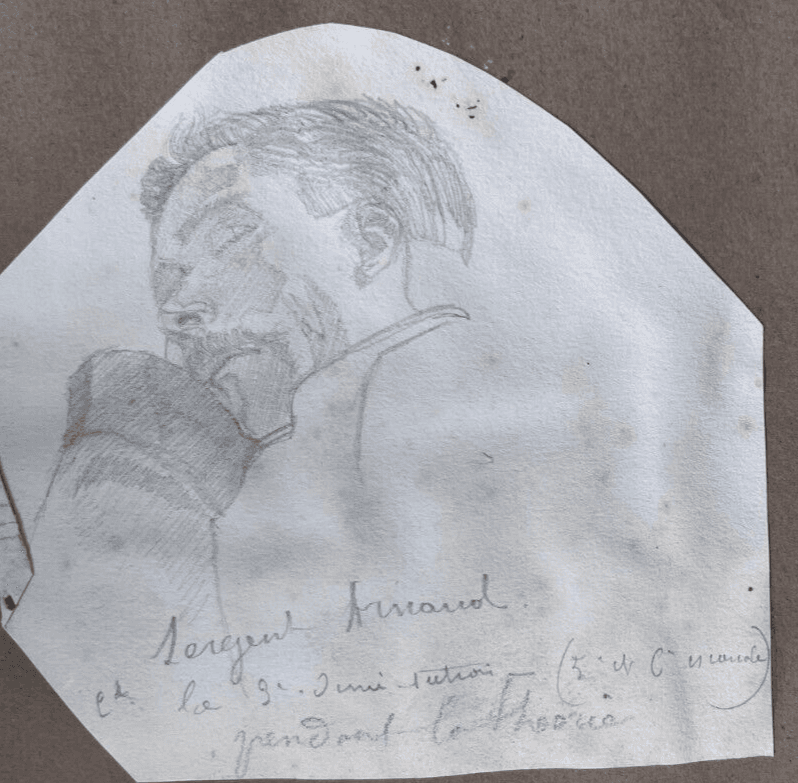 Sergent Arnaud.
Cdt la 3e demi-section (5e et 6e escouade)
pendant la théorie